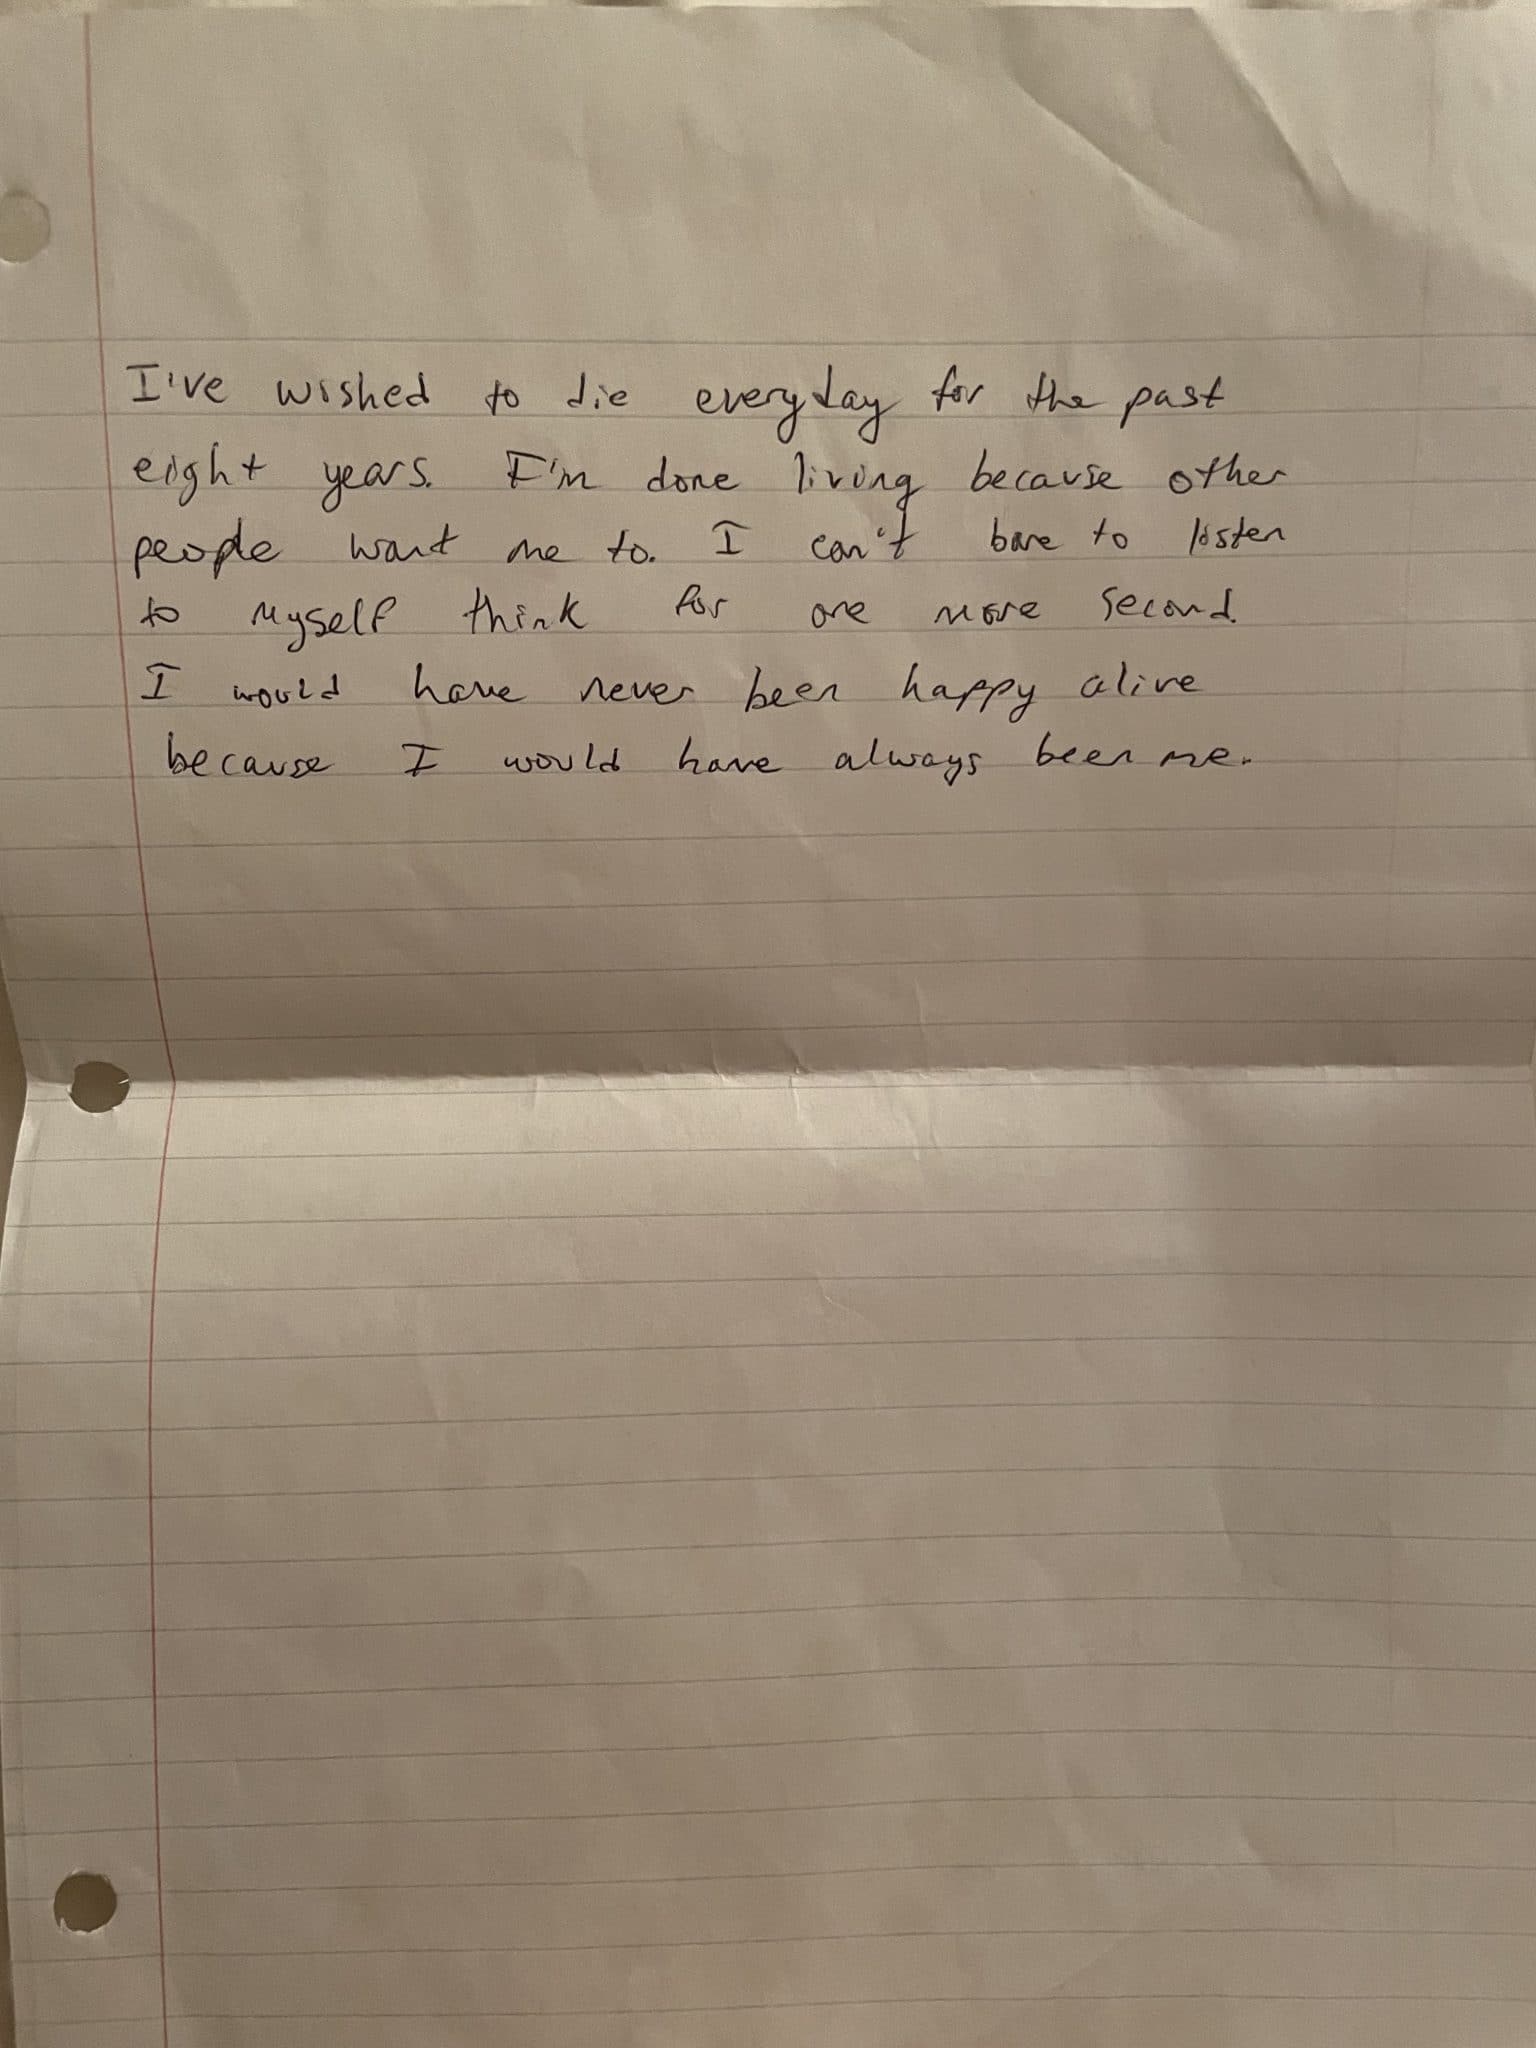 I've wished to die everyday for the past
eight years. I'm done living because other
people want me to. I can't bare to listen
to myself think for one more second.
I would have never been happy alive
because I would have always been me.